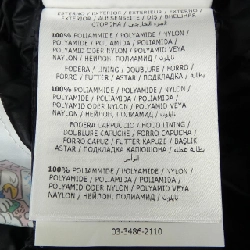 СТОРОНА / الجانب الخارجي
100% POLIAMMIDE / POLYAMIDE / NYLON /
POLYAMIDE / POLAMIDA / POLIAMIDA /
POLYAMID ODER NYLON / POLYAMID VEYA
NAYLON / НЕЙЛОН, ПОЛИАМИД / نايلون
FODERA / LINING / DOUBLURE / FORRO /
FORRO / FUTTER / ASTAR / ПОДКЛАДКА / بطانة
100% POLIAMMIDE / POLYAMIDE / NYLON /
POLYAMIDE / POLAMIDA / POLIAMIDA /
POLYAMID ODER NYLON / POLYAMID VEYA
NAYLON / НЕЙЛОН, ПОЛИАМИД / نايلون
FODERA CAPPUCCIO / HOOD LINING /
DOUBLURE CAPUCHE / FORRO CAPUCHA /
FORRO CAPUZ / FUTTER KAPUZE / BAŞLIK
ASTARI / ПОДКЛАДКА КАПЮШОНА / بطانة غطاء
الرأس
100% POLIAMMIDE / POLYAMIDE / NYLON /
POLYAMIDE / POLAMIDA / POLIAMIDA /
POLYAMID ODER NYLON / POLYAMID VEYA
NAYLON / НЕЙЛОН, ПОЛИАМИД / نايلون
03-3486-2110